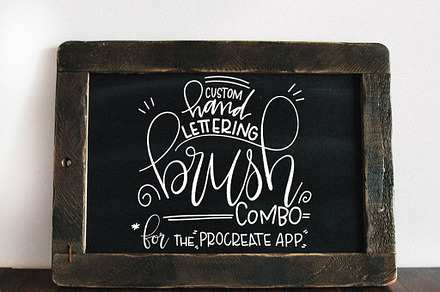 CUSTOM
hand
LETTERING
brush
COMBO
*for THE "PROCREATE APP"